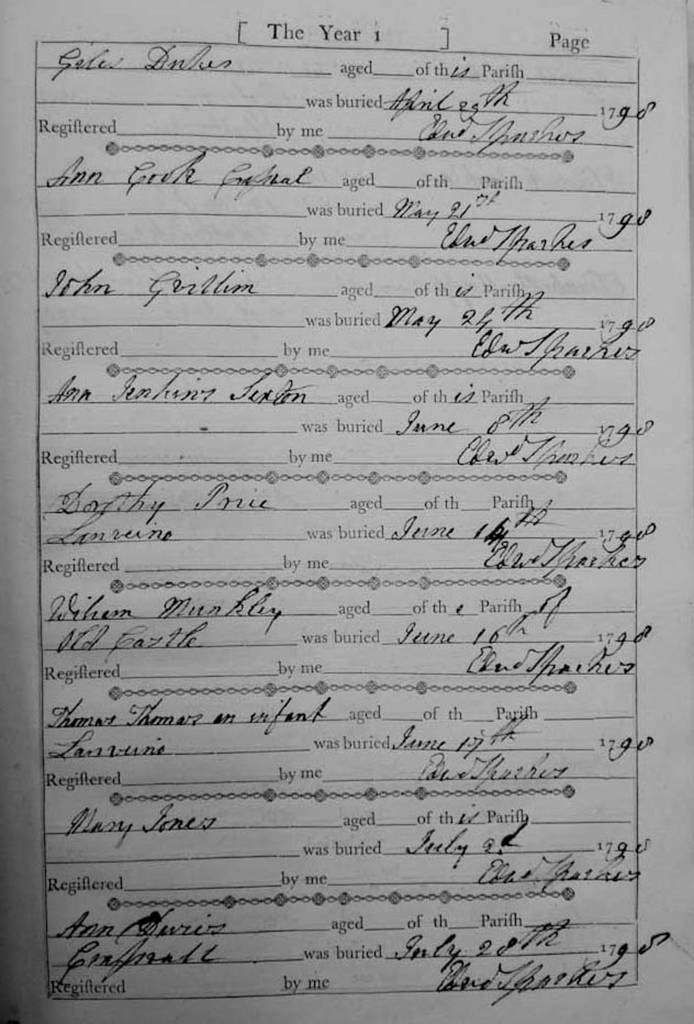 [ The Year 1 ] Page
Giles Dukes aged of this Pariſh
was buried April 29th 1798
Regiſtered by me Edwd Sparkes
Ann Cook aged of th Pariſh
was buried May 21st 1798
Regiſtered by me Edwd Sparkes
John Grillim aged of this Pariſh
was buried May 24th 1798
Regiſtered by me Edwd Sparkes
Ann Jenkins Sexton aged of this Pariſh
was buried June 8th 1798
Regiſtered by me Edwd Sparkes
Dorothy Price aged of th Pariſh
Lanveino was buried June 14th 1798
Regiſtered by me Edwd Sparkes
Wiliem Munkley aged of the Pariſh of
Old Castle was buried June 16th 1798
Regiſtered by me Edwd Sparkes
Thomas Thomas an infant aged of th Pariſh
Lanveino was buried June 17th 1798
Regiſtered by me Edwd Sparkes
Mary Jones aged of this Pariſh
was buried July 2d 1798
Regiſtered by me Edwd Sparkes
Ann aged of th Pariſh
was buried July 28th 1798
Regiſtered by me Edwd Sparkes